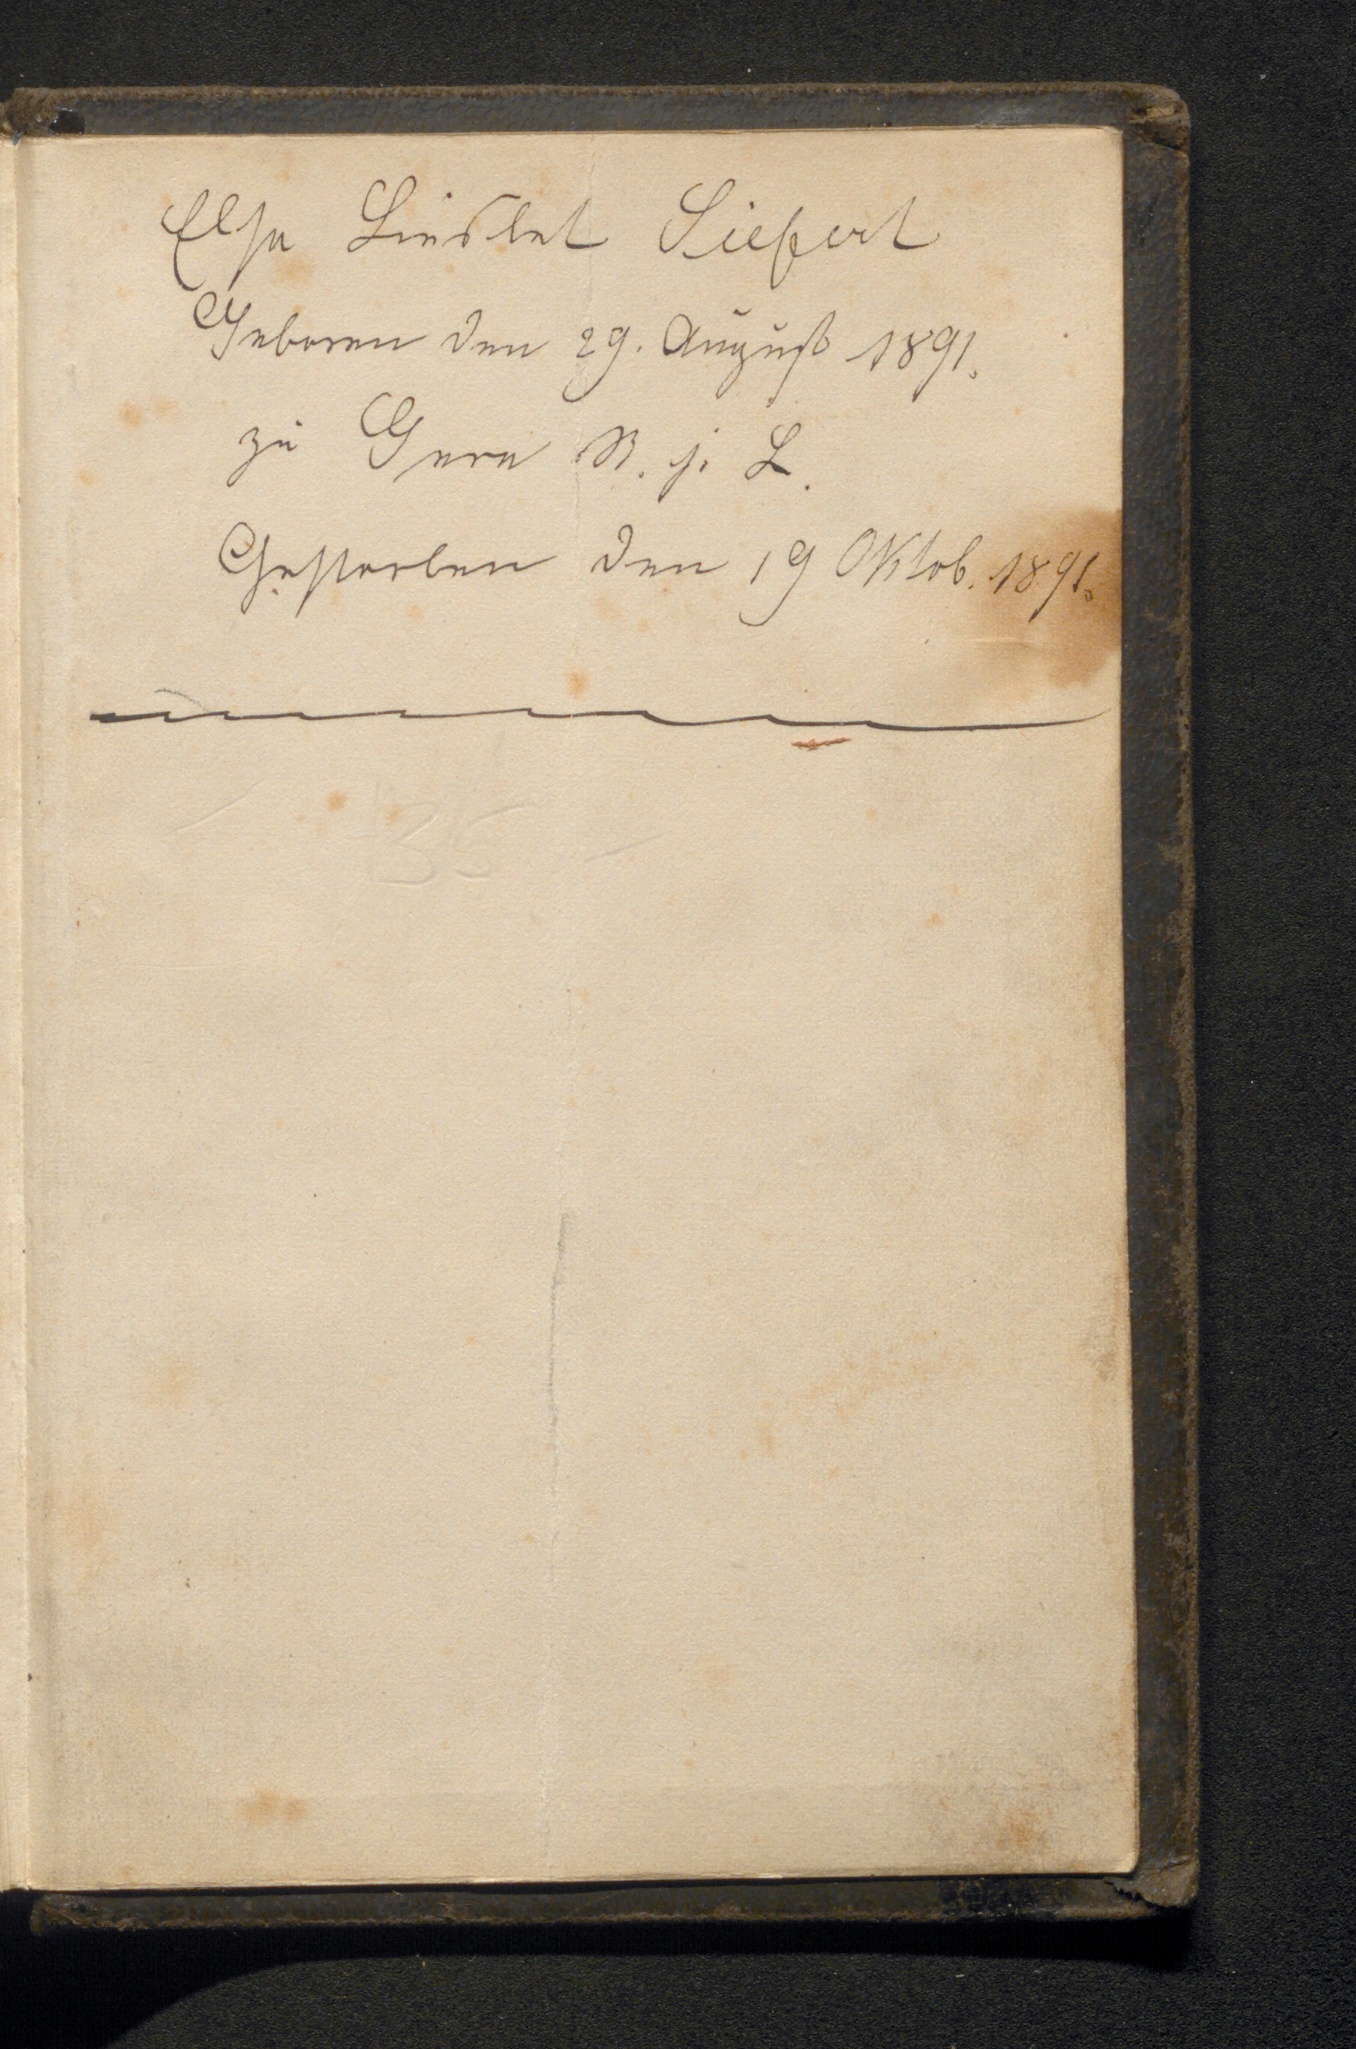 Elsa Lisbet Siefert
Geboren den 29. August 1891.
zu Gera R. j. L.
Gestorben den 19 Oktob. 1891.